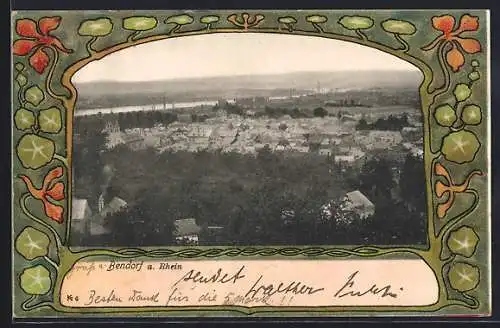 Gruß a. Bendorf a. Rhein
sendet Walther
No 6 Besten Dank für die 5 Mark !!